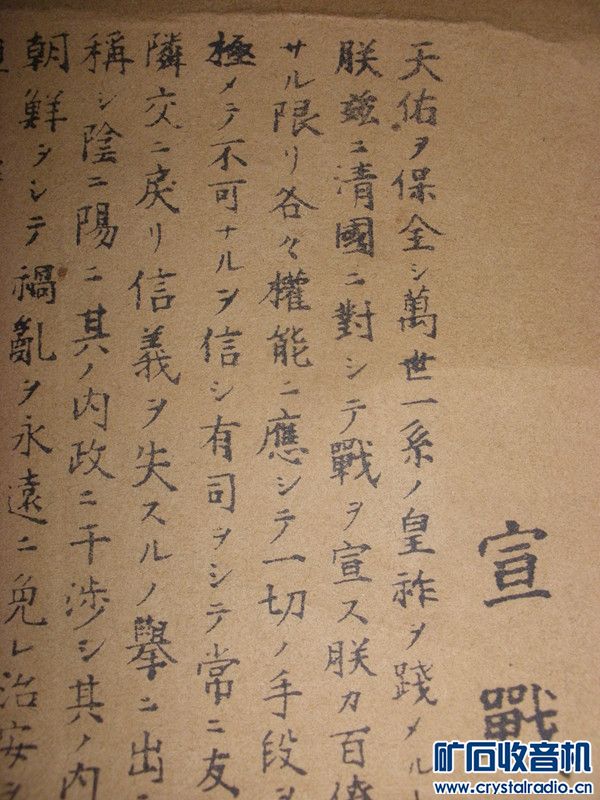 宣戰
天佑ヲ保全シ萬世一系ノ皇祚ヲ踐メル
朕玆ニ清國ニ對シテ戰ヲ宣ス朕カ百僚
サル限リ各々權能ニ應シテ一切ノ手段ヲ
極メテ不可ナルヲ信シ有司ヲシテ常ニ友
隣交ニ戻リ信義ヲ失スルノ擧ニ出
稱シ陰ニ陽ニ其ノ内政ニ干渉シ其ノ内
朝鮮ヲシテ禍亂ヲ永遠ニ免レ治安ヲ
矿石收音机
www.crystalradio.cn